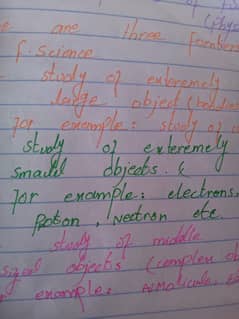 (phys
e are three frontiers
f science
study of exteremely
large object (
for example: study of
study of exteremely
small objects. (
for example: electrons,
Proton, Neutron etc.
study of middle
sized objects (complex ob
example: